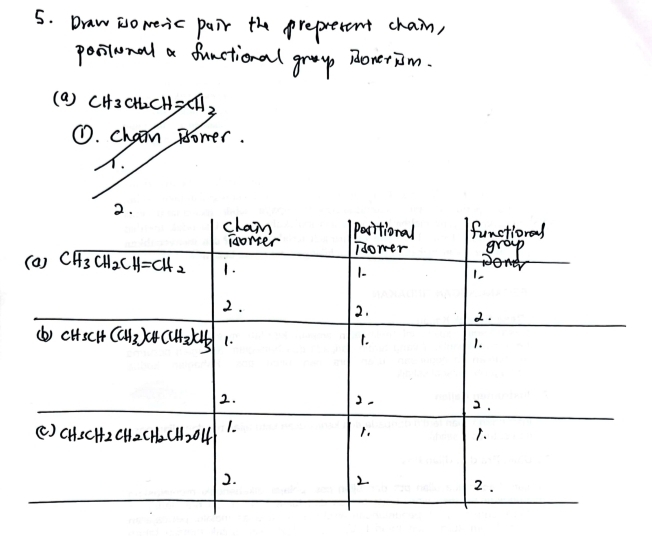 5. Draw isomeric pair the prepresent chain,
positional & functional group isomerism.
(a) CH3CH2CH=CH2
①. Chain isomer.
1.
2.
chain isomer | Positional isomer | functional group isomer
(a) CH3CH2CH=CH2 | 1. | 1. | 1.
2. | 2. | 2.
(b) CH3CH(CH3)CH(CH3)CH3 | 1. | 1. | 1.
2. | 2. | 2.
(c) CH3CH2CH2CH2CH2OH | 1. | 1. | 1.
2. | 2 | 2.